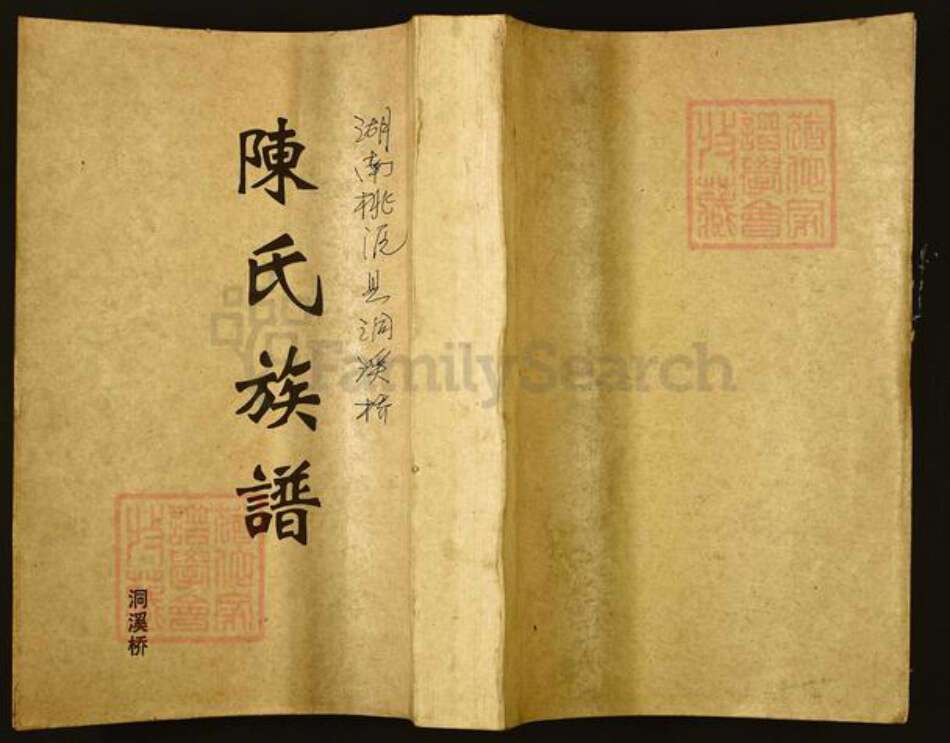 陳氏族譜
湖南桃源县洞溪桥
洞溪桥
FamilySearch